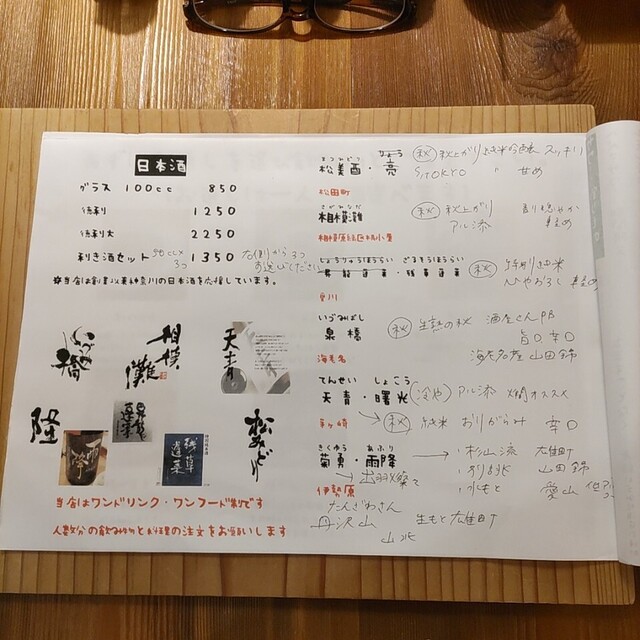 日本酒
グラス 100cc 850
徳利 1250
徳利大 2250
利き酒セット 1350
右(利)から3つ
お選びください
☆当店は創業以来神奈川の日本酒を応援しています。
いづみ橋
相模灘
天青
隆
昇龍蓬莱
残草蓬莱
雨降
松みどり
当店はワンドリンク・ワンフード制です
人数分の飲み物とお料理の注文をお願いします
まつみどり りょう
松美酉・亮 秋 秋上がり 純米吟醸 スッキリ
S.TOKYO 〃 甘め
松田町
さがみなだ
相模灘 秋 秋上がり
アル添
相模原緑区
しょうりゅうほうらい ざるそうほうらい
昇龍蓬莱・残草蓬莱 秋 特別純米
ひやおろし
愛川
いづみばし
泉橋 秋 生熟の秋 酒屋さんPB
旨口 辛口
海老名 海老名産 山田錦
てんせい しょこう
天青・曙光 冷や アル添 燗オススメ
茅ヶ崎 秋 純米 おりがらみ 辛口
きくゆう あふり
菊勇・雨降 → ・杉山流 雄町
出羽燦々 山田錦
伊勢原 ・水もと 愛山
たんざわさん
丹沢山 生もと雄町
山北